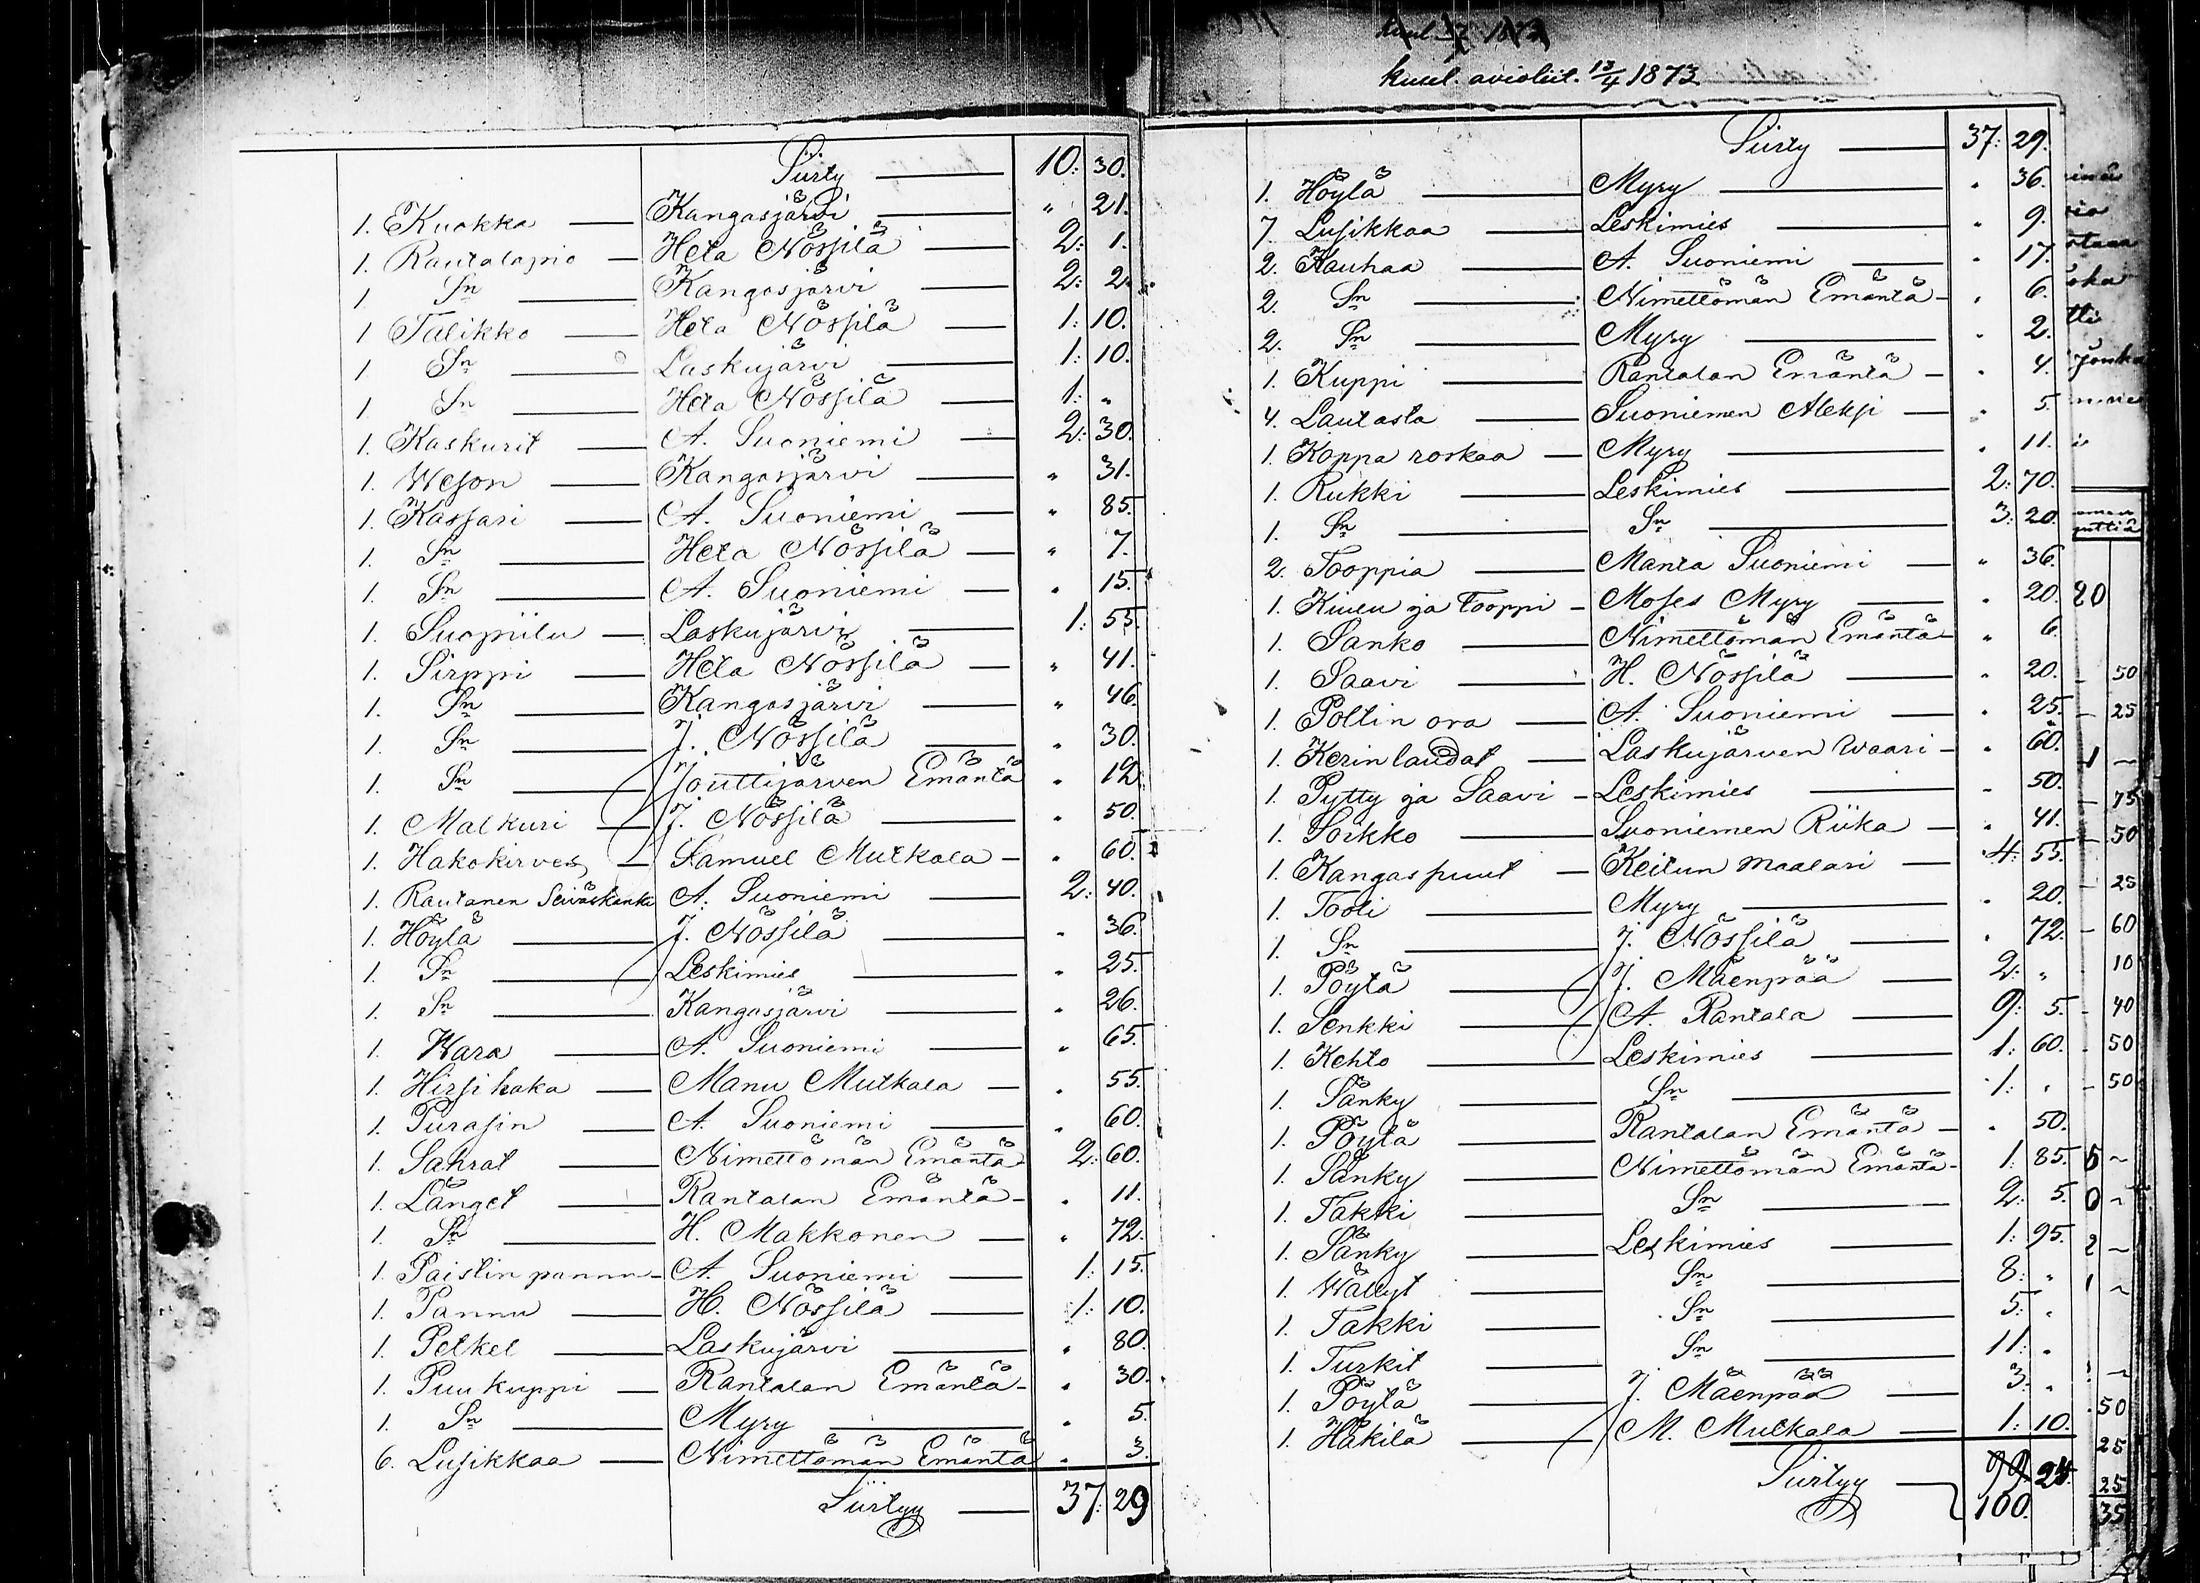 Siirty 10: 30.
1. Kuokka Kangasjärvi " 21.
1. Rautalapio Heta Nössilä 2: 1.
1 Sn Kangasjärvi 2: 2.
1 Talikko Heta Nössilä 1: 10.
1 Sn Laskujärvi 1: 10.
1 Sn Heta Nössilä 1: "
1. Kaskurit A. Suoniemi 2: 30.
1. Weson Kangasjärvi " 31.
1. Kassari A. Suoniemi " 85.
1. Sn Heta Nössilä " 7.
1. Sn A. Suoniemi " 15.
1. Suopiilu Laskujärvi 1: 55.
1. Sirppi Heta Nössilä " 41.
1. Sn Kangasjärvi " 46.
1. Sn J. Nössilä " 30.
1. Sn Jouttijärven Emäntä " 12.
1. Malkuri J. Nössilä " 50.
1. Hakokirves Samuel Mutkala " 60.
1. Rautanen Seiväskanki A. Suoniemi 2: 40.
1. Höylä J. Nössilä " 36.
1. Sn Leskimies " 25.
1. Sn Kangasjärvi " 26.
1. Wara A. Suoniemi " 65.
1. Hirsihaka Manu Mutkala " 55.
1. Purasin A. Suoniemi " 60.
1. Sahrat Nimettömän Emäntä 2: 60.
1. Länget Rantalan Emäntä " 11.
1. Sn H. Makkonen " 72.
1. Paistin pannu A. Suoniemi 1: 15.
1. Pannu H. Nössilä 1: 10.
1. Petkel Laskujärvi " 80.
1. Puu kuppi Rantalan Emäntä " 30.
1. Sn Myry " 5.
6. Lusikkaa Nimettömän Emäntä " 3.
Siirtyy 37: 29
kuul. avioliit. 13/4 1873
Siirty 37: 29.
1. Höylä Myry " 36.
7. Lusikkaa Leskimies " 9.
2. Kauhaa A. Suoniemi " 17.
2. Sn Nimettömän Emäntä " 6.
2. Sn Myry " 2.
1. Kuppi Rantalan Emäntä " 4.
4. Lautasta Suoniemen Aleksi " 5.
1. Koppa roskaa Myry " 11.
1. Rukki Leskimies 2: 70.
1. Sn Sn 3: 20.
2. Tooppia Manta Suoniemi " 36.
1. Kiulu ja Tooppi Moses Myry " 20.
1. Sanko Nimettömän Emäntä " 6.
1. Saavi H. Nössilä " 20.
1. Poltin ora A. Suoniemi " 25.
1. Kerinlaudat Laskujärven Waari " 60.
1. Pytty ja Saavi Leskimies " 50.
1. Soikko Suoniemen Riika " 41.
1. Kangaspuut Keitun maalari 4: 55.
1. Tooli Myry " 20.
1. Sn J. Nössilä " 72.
1. Pöytä J. Mäenpää 2: "
1. Senkki A. Rantala 9: 5.
1. Kehto Leskimies 1: 60.
1. Sänky Sn 1: "
1. Pöytä Rantalan Emäntä " 50.
1. Sänky Nimettömän Emäntä 1: 85.
1. Takki Sn 2: 5.
1. Sänky Leskimies 1: 95.
1. Wällyt Sn 8: "
1. Takki Sn 5: "
1. Turkit Sn 11: "
1. Pöytä J. Mäenpää 3: "
1. Häkilä M. Mutkala 1: 10.
Siirtyy 99 24.
100.